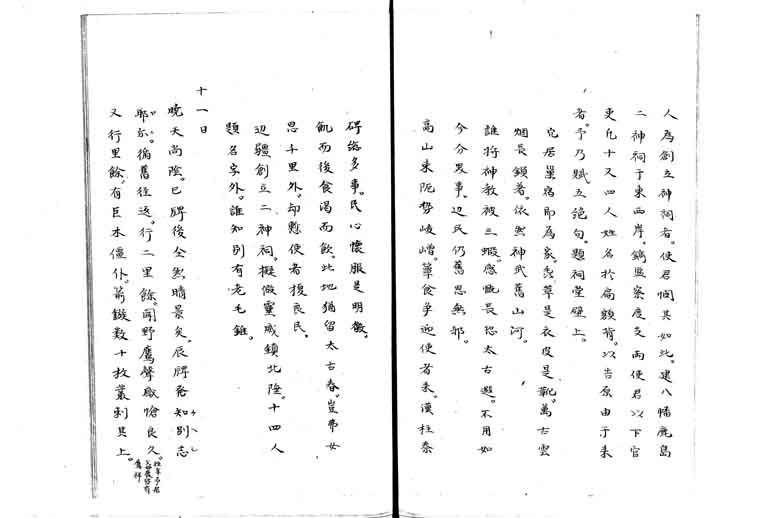 人為創立神祠者。使君悃其如此。建八幡鹿島
二神祠于東西岸。鐫監察度支両使君以下官
吏凡十又四人姓名於扁額背。以告原由于来
者。予乃賦五絶句。題祠堂壁上。
穴居巣宿即為家。卉草是衣皮是靴。萬古雲
烟長鎖著。依然神武舊山河。
誰将神教被三蝦。感慨長思太古遐。不用如
今分界事。辺民仍舊思無邪。
高山来阨勢崚嶒。簞食争迎使者来。漢柱秦
碑徒多事。民心懐服是明徴。
飢而後食渇而飲。此地猶留太古春。豈啻女
思千里外。却慙使者撫良民。
辺疆創立二神祠。擬倣霊威鎮北陲。十四人
題名字外。誰知別有老毛錐。
十一日
暁天尚陰。巳牌後全然晴景矣。辰牌発知別志
耶尓。循舊径返。行二里餘。聞野鷹聲嘹喨良久。
又行里餘。有巨木僵仆。箭鏃数十枚叢刺其上。